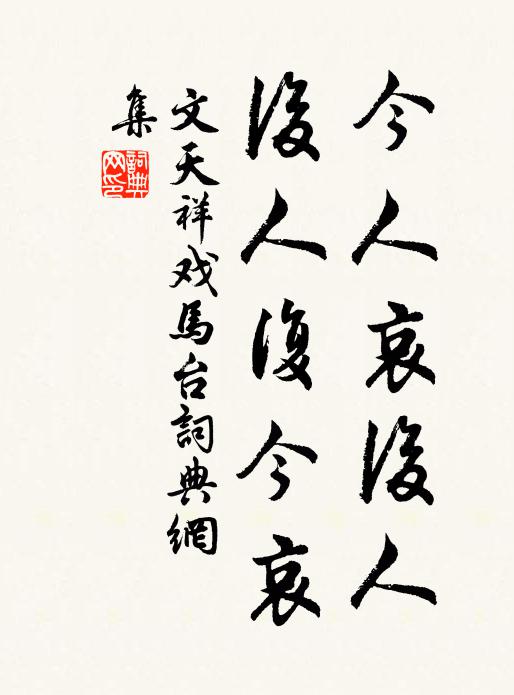 今人哀後人
後人復今哀
文天祥戏馬台詞典網
集
詞典网印